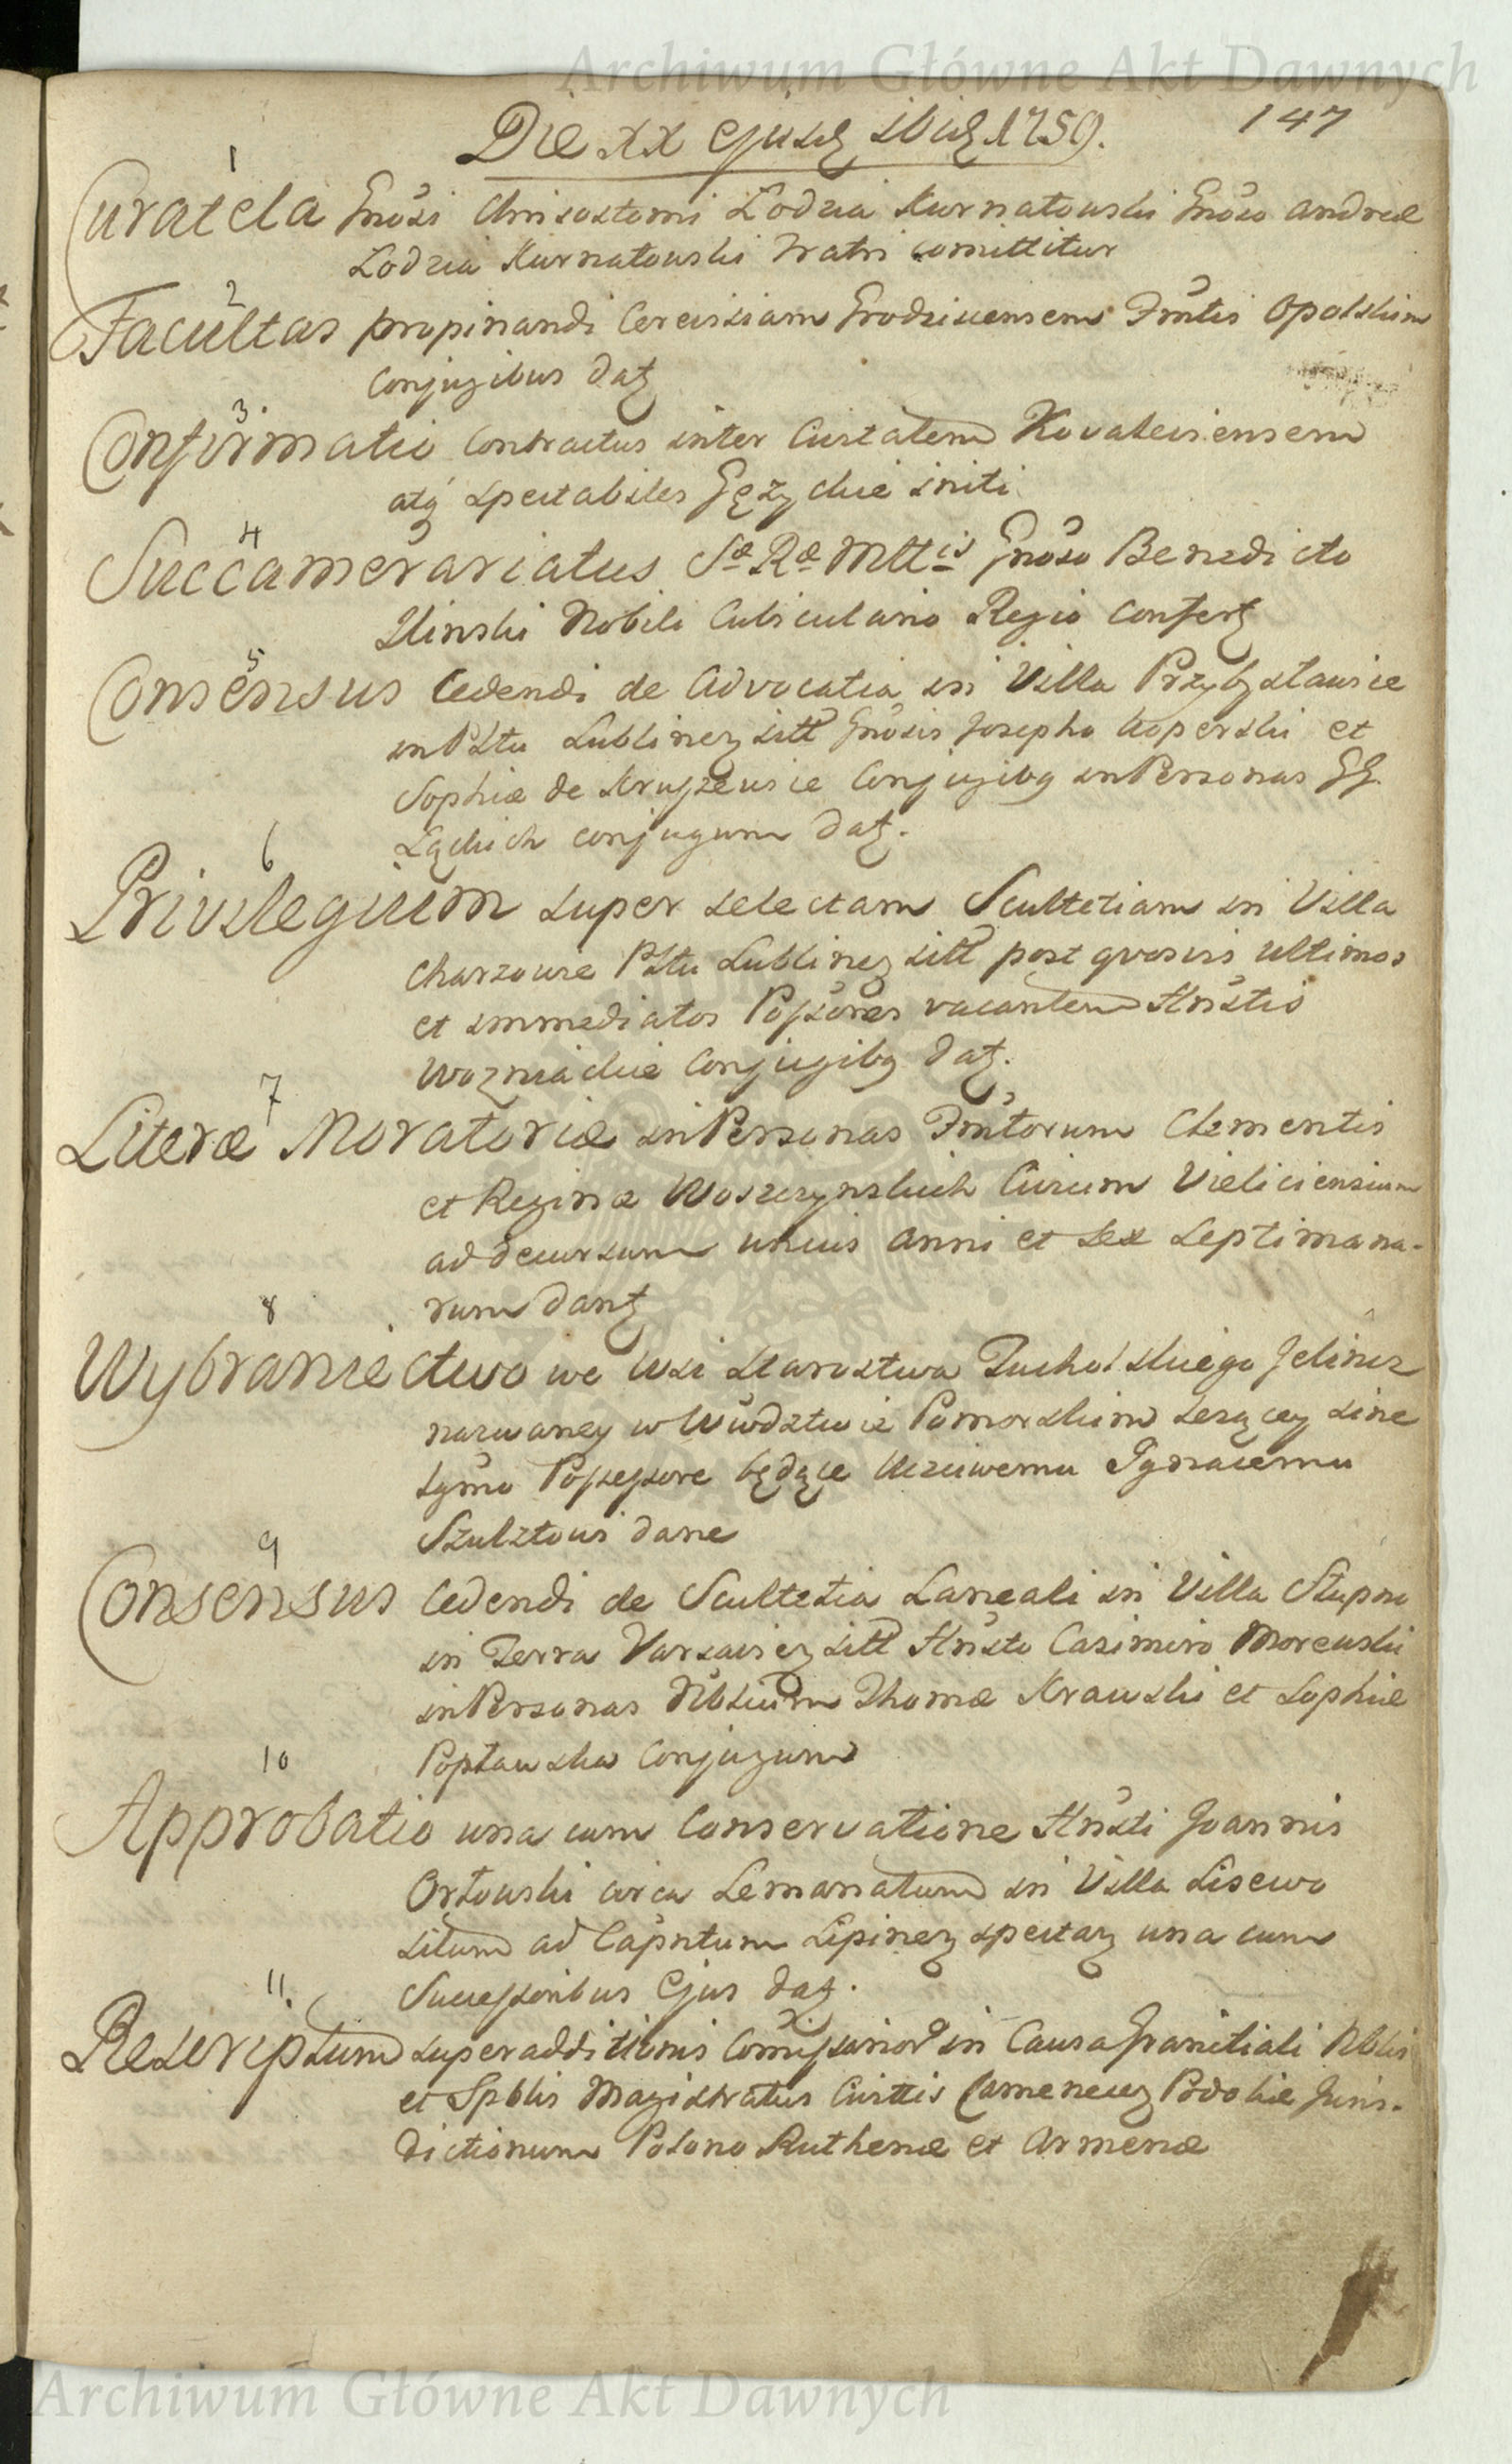 Archiwum Główne Akt Dawnych
147
Die XX ejusd ibid 1759.
1
Curatela Gnosi Chrisostomi Lodzia Kurnatowski Gnoso Andreæ
Lodzia Kurnatowski Fratri comittitur
2
Facultas propinandi Cerevisiam Grodziscensem Fmtis Opolskim
Conjugibus dat
3
Confirmatio Contractus inter Civitatem Kovaleviensem
atq spectabiles Gęzyckie initi
4
Succamerariatus Sæ Ræ Mttis Gnoso Benedicto
Ilinski Nobili Cubiculario Regio Confert
5
Consensus Cedendi de Advocatia in Villa Przybysławice
in Pttu Lublinen sitt Gnosis Josepho Koperski et
Sophiæ de Kruszewie Conjugibq in Personas GG.
Łąckich conjugum dat.
6
Privilegium super selectam Scultetiam in Villa
Charzowie Pttu Lublinen sitt post quosvis ultimos
et immediatos Possores vacantem Hnstis
Wozniackie Conjugibq dat.
7
Literæ Moratoriæ in Personas Fmtorum Clementis
et Reginæ Woszczynskich Civium Vieliciensium
ad decursum unius anni et sex septimana-
rum dant
8
Wybraniectwo we wsi starostwa Tucholskiego Jelinez
nazwaney w Wwdztwie Pomorskim leżącey sine
lgmo Possessore będące Uczciwemu Ignacemu
Szulztowi dane
9
Consensus Cedendi de Scultetia Laneali in Villa Słupno
in Terra Varsavien sitt Hnsto Casimiro Morewski
in Personas Nblium Thomæ Krawski et Sophiæ
Popławska Conjugum
10
Approbatio una cum Conservatione Hnsti Joannis
Orłowski circa Lemanatum in Villa Lisewo
situm ad Capntum Lipinen spectan una cum
Successoribus Ejus dat.
11.
Rescriptum superadditionis Comissarior in Causa Granitiali Nblis
et Spblis Magistratus Civittis Camenecen Podoliæ Juris-
dictionum Polono Ruthenæ et Armenæ
Archiwum Główne Akt Dawnych